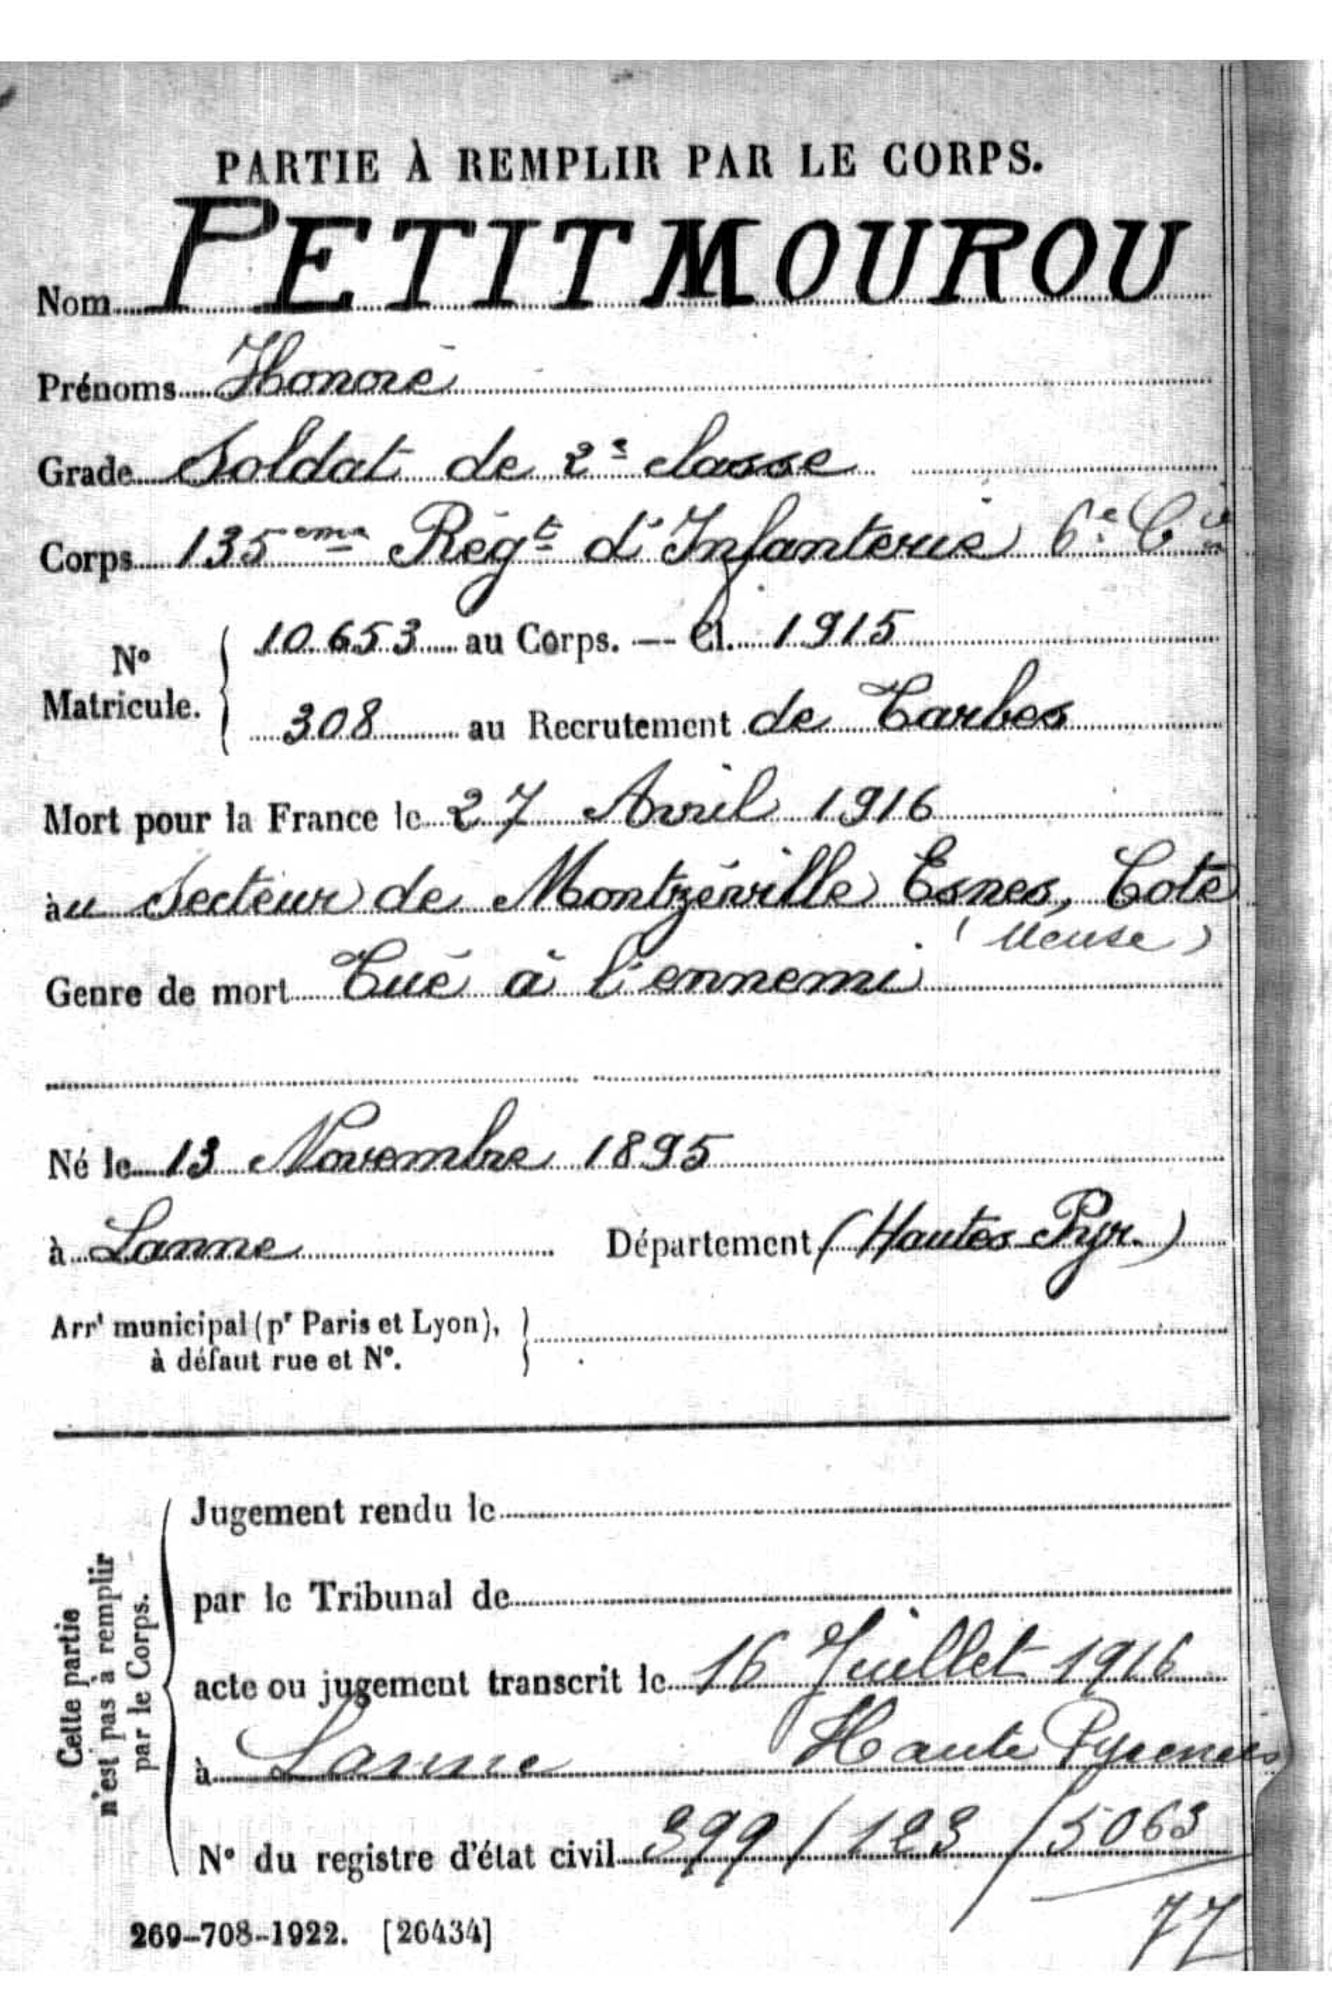 PARTIE À REMPLIR PAR LE CORPS.
Nom PETITMOUROU
Prénoms Honoré
Grade Soldat de 2e classe
Corps 135eme Régt d'Infanterie 6e Cie
No Matricule. 10.653 au Corps. — Cl. 1915
308 au Recrutement de Tarbes
Mort pour la France le 27 Avril 1916
àu Secteur de Montzéville Esnes, Cote
(Meuse)
Genre de mort Tué à l'ennemi
Né le 13 Novembre 1895
à Lanne Département (Hautes Pyr.)
Arrt municipal (pr Paris et Lyon),
à défaut rue et No.
Cette partie
n'est pas à remplir
par le Corps.
Jugement rendu le
par le Tribunal de
acte ou jugement transcrit le 16 Juillet 1916
à Lanne Haute Pyrenees
No du registre d'état civil 399/123/5063
77
269-708-1922. [26434]